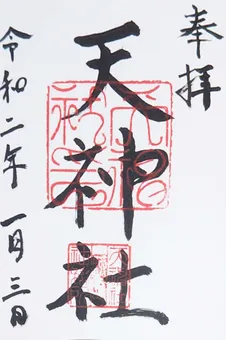 奉拝
天神社
令和二年一月三日